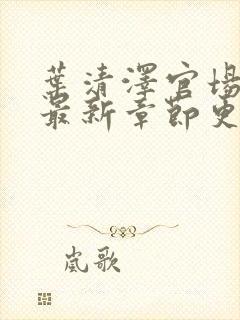 葉清澤官場
最新章節更
嵐歌